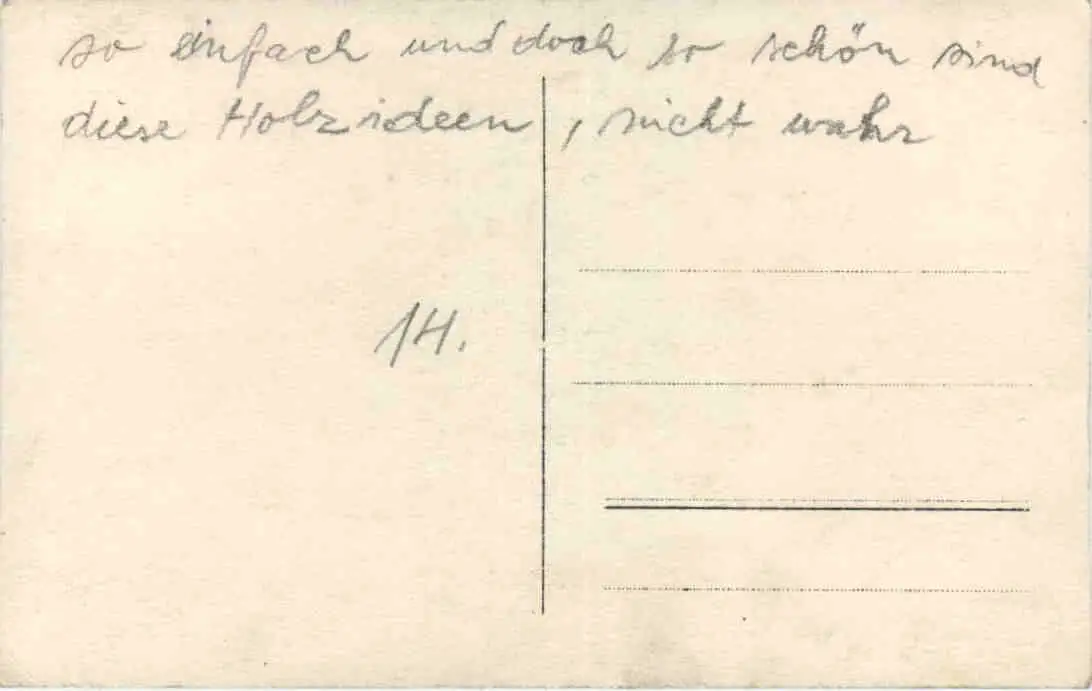 so einfach und doch so schön sind
diese Holzideen, nicht wahr
14.